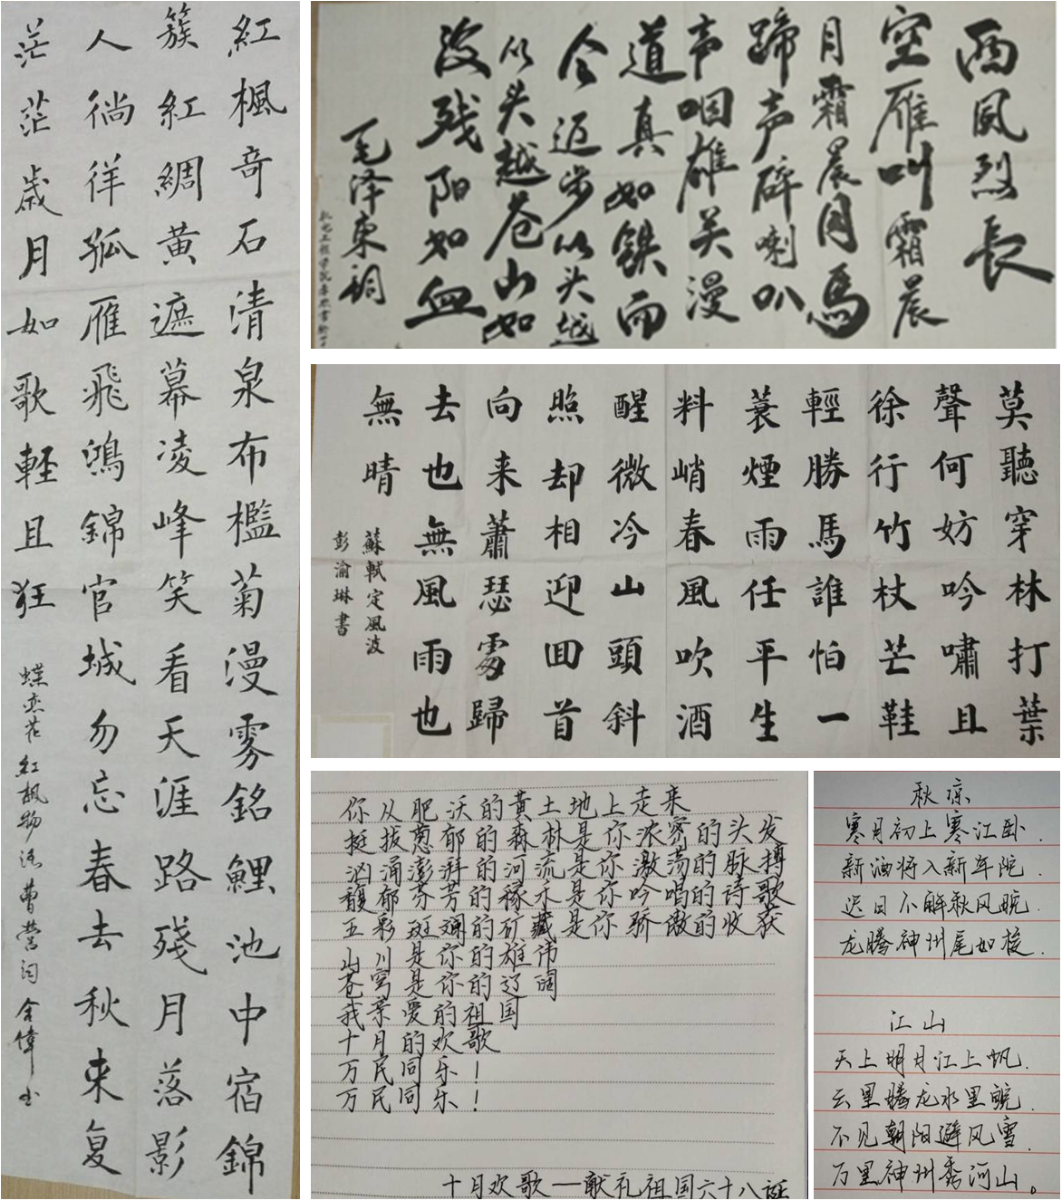 紅楓奇石清泉布檻菊漫雾銘鯉池中宿錦
簇紅綢黃遮幕凌峰笑看天涯路殘月落影
人徜徉孤雁飛鴻錦官城勿忘春去秋來复
茫茫歲月如歌輕且狂
蝶恋花紅楓物语曹營词金偉书
西风烈長
空雁叫霜晨
月霜晨月馬
蹄声碎喇叭
声咽雄关漫
道真如铁而
今迈步从头越
从头越苍山如
海残阳如血
毛泽东詞
莫聽穿林打葉
聲何妨吟嘯且
徐行竹杖芒鞋
輕勝馬誰怕一
蓑煙雨任平生
料峭春風吹酒
醒微冷山頭斜
照却相迎回首
向来蕭瑟處歸
去也無風雨也
無晴
蘇軾定風波
彭渝琳書
你从肥沃的黄土地上走来
挺拔葱郁的森林是你浓密的头发
汹涌澎湃的河流是你激荡的脉搏
馥郁芬芳的稼禾是你吟唱的诗歌
五彩斑斓的矿藏是你骄傲的收获
山川是你的雄伟
苍穹是你的辽阔
我亲爱的祖国
十月的欢歌
万民同乐！
万民同乐！
十月欢歌—献礼祖国六十八诞
秋凉
寒月初上寒江卧.
新酒将入新年院.
迟日不解秋风晚.
龙腾神州尾如梭.
江山
天上明月江上帆.
云里腾龙水里皖.
不见朝阳避风雪.
万里神州秀河山。